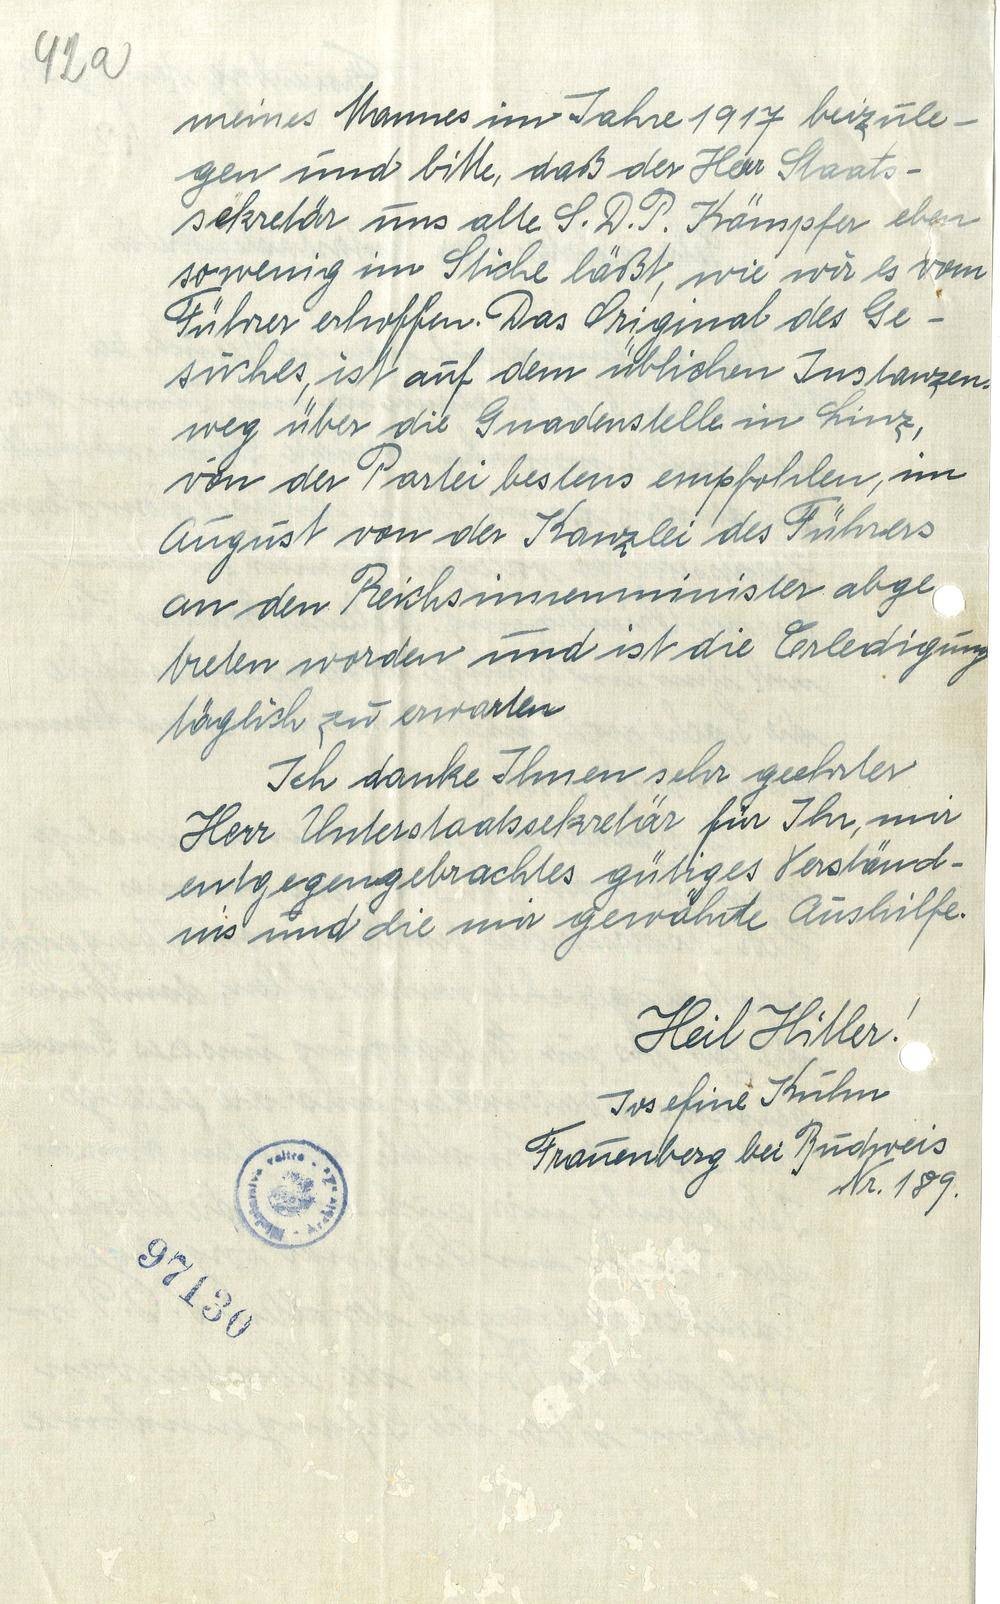 42a
meines Mannes im Jahre 1917 beizule-
gen und bitte, daß der Herr Staats-
sekretär uns alte S.D.P. Kämpfer eben
sowenig im Stiche läßt, wie wir es vom
Führer erhoffen. Das Original des Ge-
suches, ist auf dem üblichen Instanzen-
weg über die Gnadenstelle in Linz,
von der Partei bestens empfohlen, im
August von der Kanzlei des Führers
an den Reichsinnenminister abge
treten worden und ist die Erledigung
täglich zu erwarten
Ich danke Ihnen sehr geehrter
Herr Unterstaatssekretär für Ihr, mir
entgegengebrachtes gütiges Verständ-
nis und die mir gewährte Aushilfe.
Heil Hitler!
Josefine Kühn
Frauenberg bei Budweis
Nr. 189.
97130